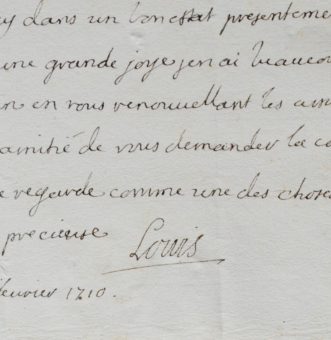 dans un bon estat presenteme
une grande joye jen ai beaucou
en vous renouvellant les
amitié de vous demander la co
regarde comme une des chose
precieuse
Louis
fevrier 1710.